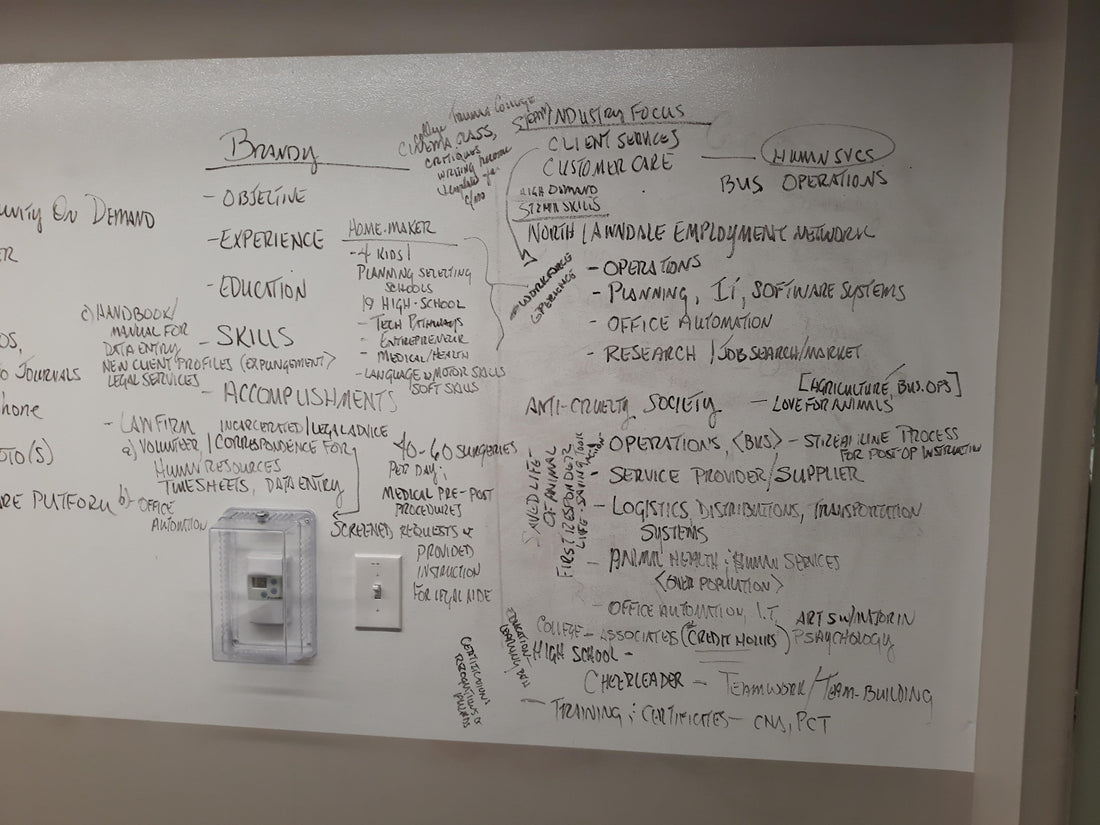 UNITY ON DEMAND
ER
OS,
O JOURNALS
hone
OTO(S)
RE PLATFORM
BRANDY
- OBJECTIVE
- EXPERIENCE
- EDUCATION
- SKILLS
- ACCOMPLISHMENTS
HOME-MAKER
- 4 KIDS |
PLANNING SELECTING
SCHOOLS
HIGH-SCHOOL
- TECH PATHWAYS
- ENTREPRENEUR
- MEDICAL/HEALTH
- LANGUAGE MOTOR SKILLS
SOFT SKILLS
C) HANDBOOK/
MANUAL FOR
DATA ENTRY
NEW CLIENT PROFILES (EXPUNGEMENT>
LEGAL SERVICES
- LAW FIRM INCARCERATED/LEGAL ADVICE
a) VOLUNTEER / CORRESPONDENCE FOR
HUMAN RESOURCES
TIMESHEETS, DATA ENTRY
b) - OFFICE
AUTOMATION
SCREENED REQUESTS &
PROVIDED
INSTRUCTION
FOR LEGAL AIDE
40-60 SURGERIES
PER DAY;
MEDICAL PRE-POST
PROCEDURES
College
CINEMA CLASS,
CRITIQUES
WRITING
STEAM/INDUSTRY FOCUS
CLIENT SERVICES
CUSTOMER CARE
HUMAN SVCS
BUS OPERATIONS
HIGH DEMAND
STEAM SKILLS
NORTH LAWNDALE EMPLOYMENT NETWORK
WORKFORCE
EXPERIENCE
- OPERATIONS
- PLANNING, IT, SOFTWARE SYSTEMS
- OFFICE AUTOMATION
- RESEARCH / JOB SEARCH/MARKET
[AGRICULTURE, BUS. OPS]
ANTI-CRUELTY SOCIETY - LOVE FOR ANIMALS
SAVED LIFE-
OF ANIMAL
FIRST RESPONDER
LIFE-SAVING
- OPERATIONS, <BUS> - STREAMLINE PROCESS
FOR POST OP INSTRUCTION
- SERVICE PROVIDER/SUPPLIER
- LOGISTICS, DISTRIBUTIONS, TRANSPORTATION
SYSTEMS
- ANIMAL HEALTH & HUMAN SERVICES
<OVER POPULATION>
- OFFICE AUTOMATION, I.T.
EDUCATION
LEARNING
COLLEGE - ASSOCIATES (# CREDIT HOURS) ARTS W/MATOR IN
PSAYCHOLOGY
HIGH SCHOOL -
CHEERLEADER - TEAMWORK/TEAM-BUILDING
CERTIFICATIONS
RECOGNITIONS &
AWARDS
- TRAINING & CERTIFICATES - CNA, PCT